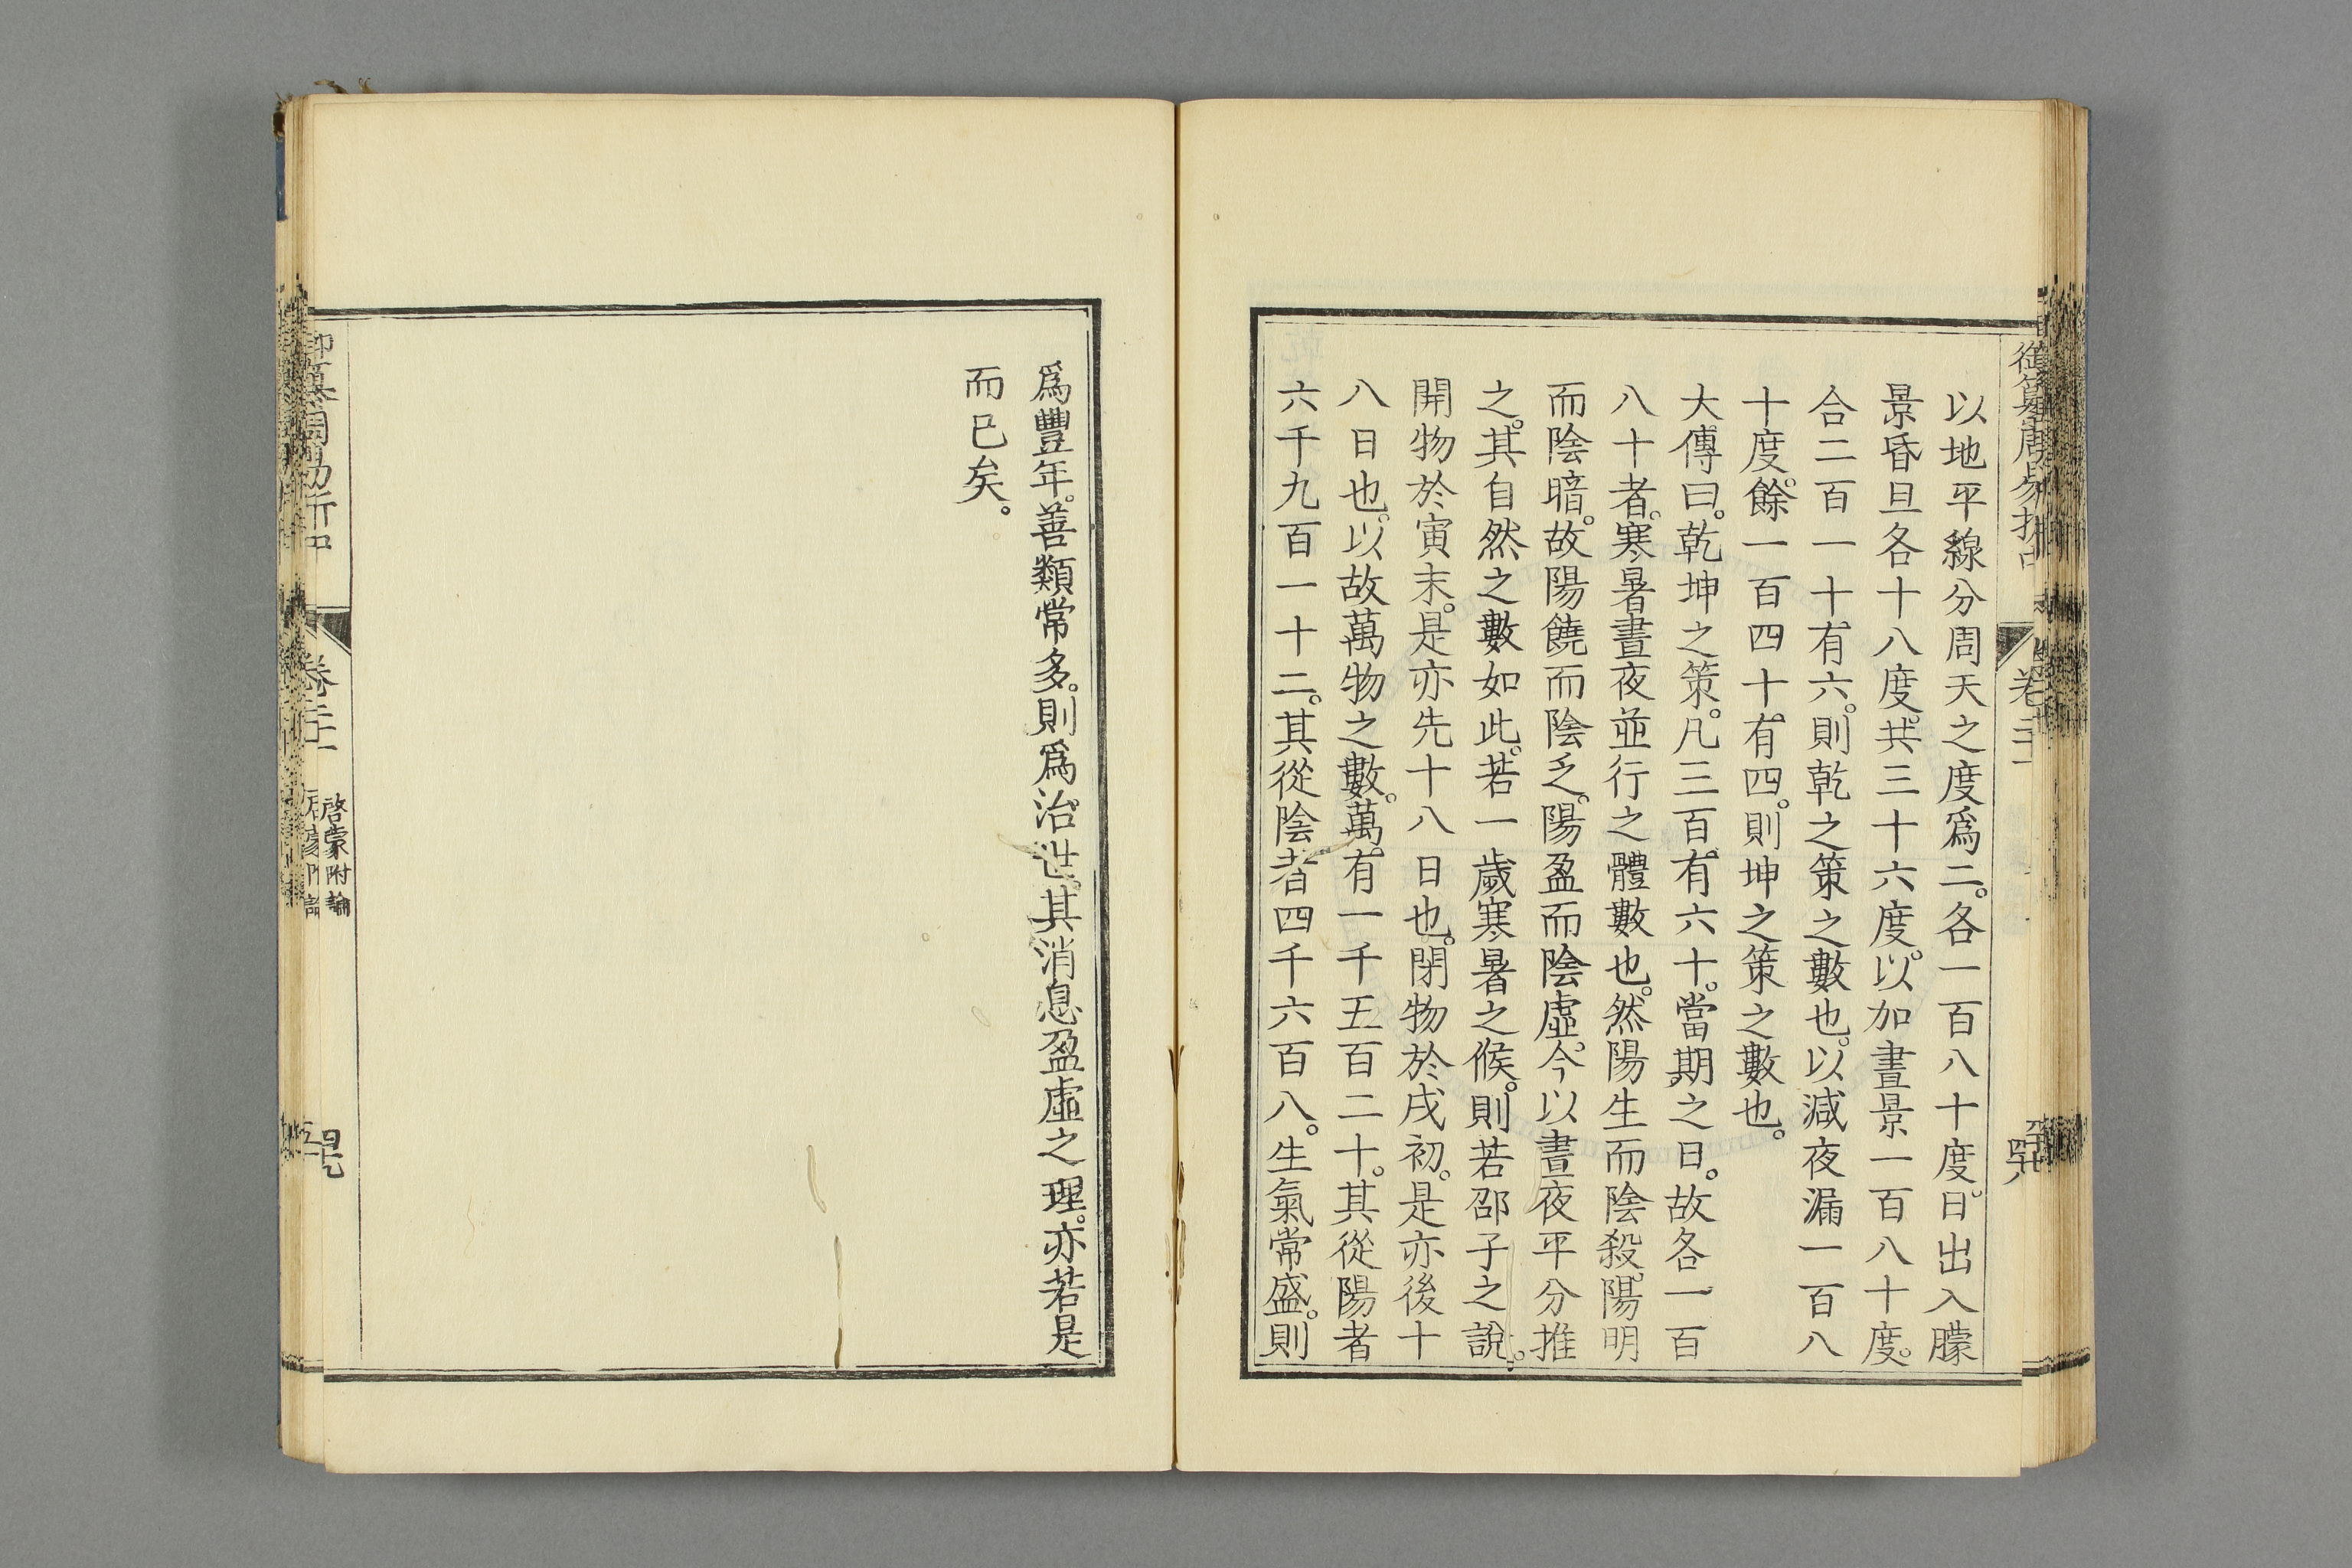 以地平線分周天之度爲二。各一百八十度。日出入朦
景昏旦各十八度。共三十六度。以加晝景一百八十度。
合二百一十有六。則乾之策之數也。以減夜漏一百八
十度。餘一百四十有四。則坤之策之數也。
大傳曰。乾坤之策。凡三百有六十。當期之日。故各一百
八十者。寒暑晝夜並行之體數也。然陽生而陰殺。陽明
而陰暗。故陽饒而陰乏。陽盈而陰虛。今以晝夜平分推
之。其自然之數如此。若一歲寒暑之候。則若邵子之說。
開物於寅末。是亦先十八日也。閉物於戌初。是亦後十
八日也。以故萬物之數。萬有一千五百二十。其從陽者
六千九百一十二。其從陰者四千六百八。生氣常盛。則
爲豐年。善類常多。則爲治世。其消息盈虛之理。亦若是
而已矣。
啓蒙附論